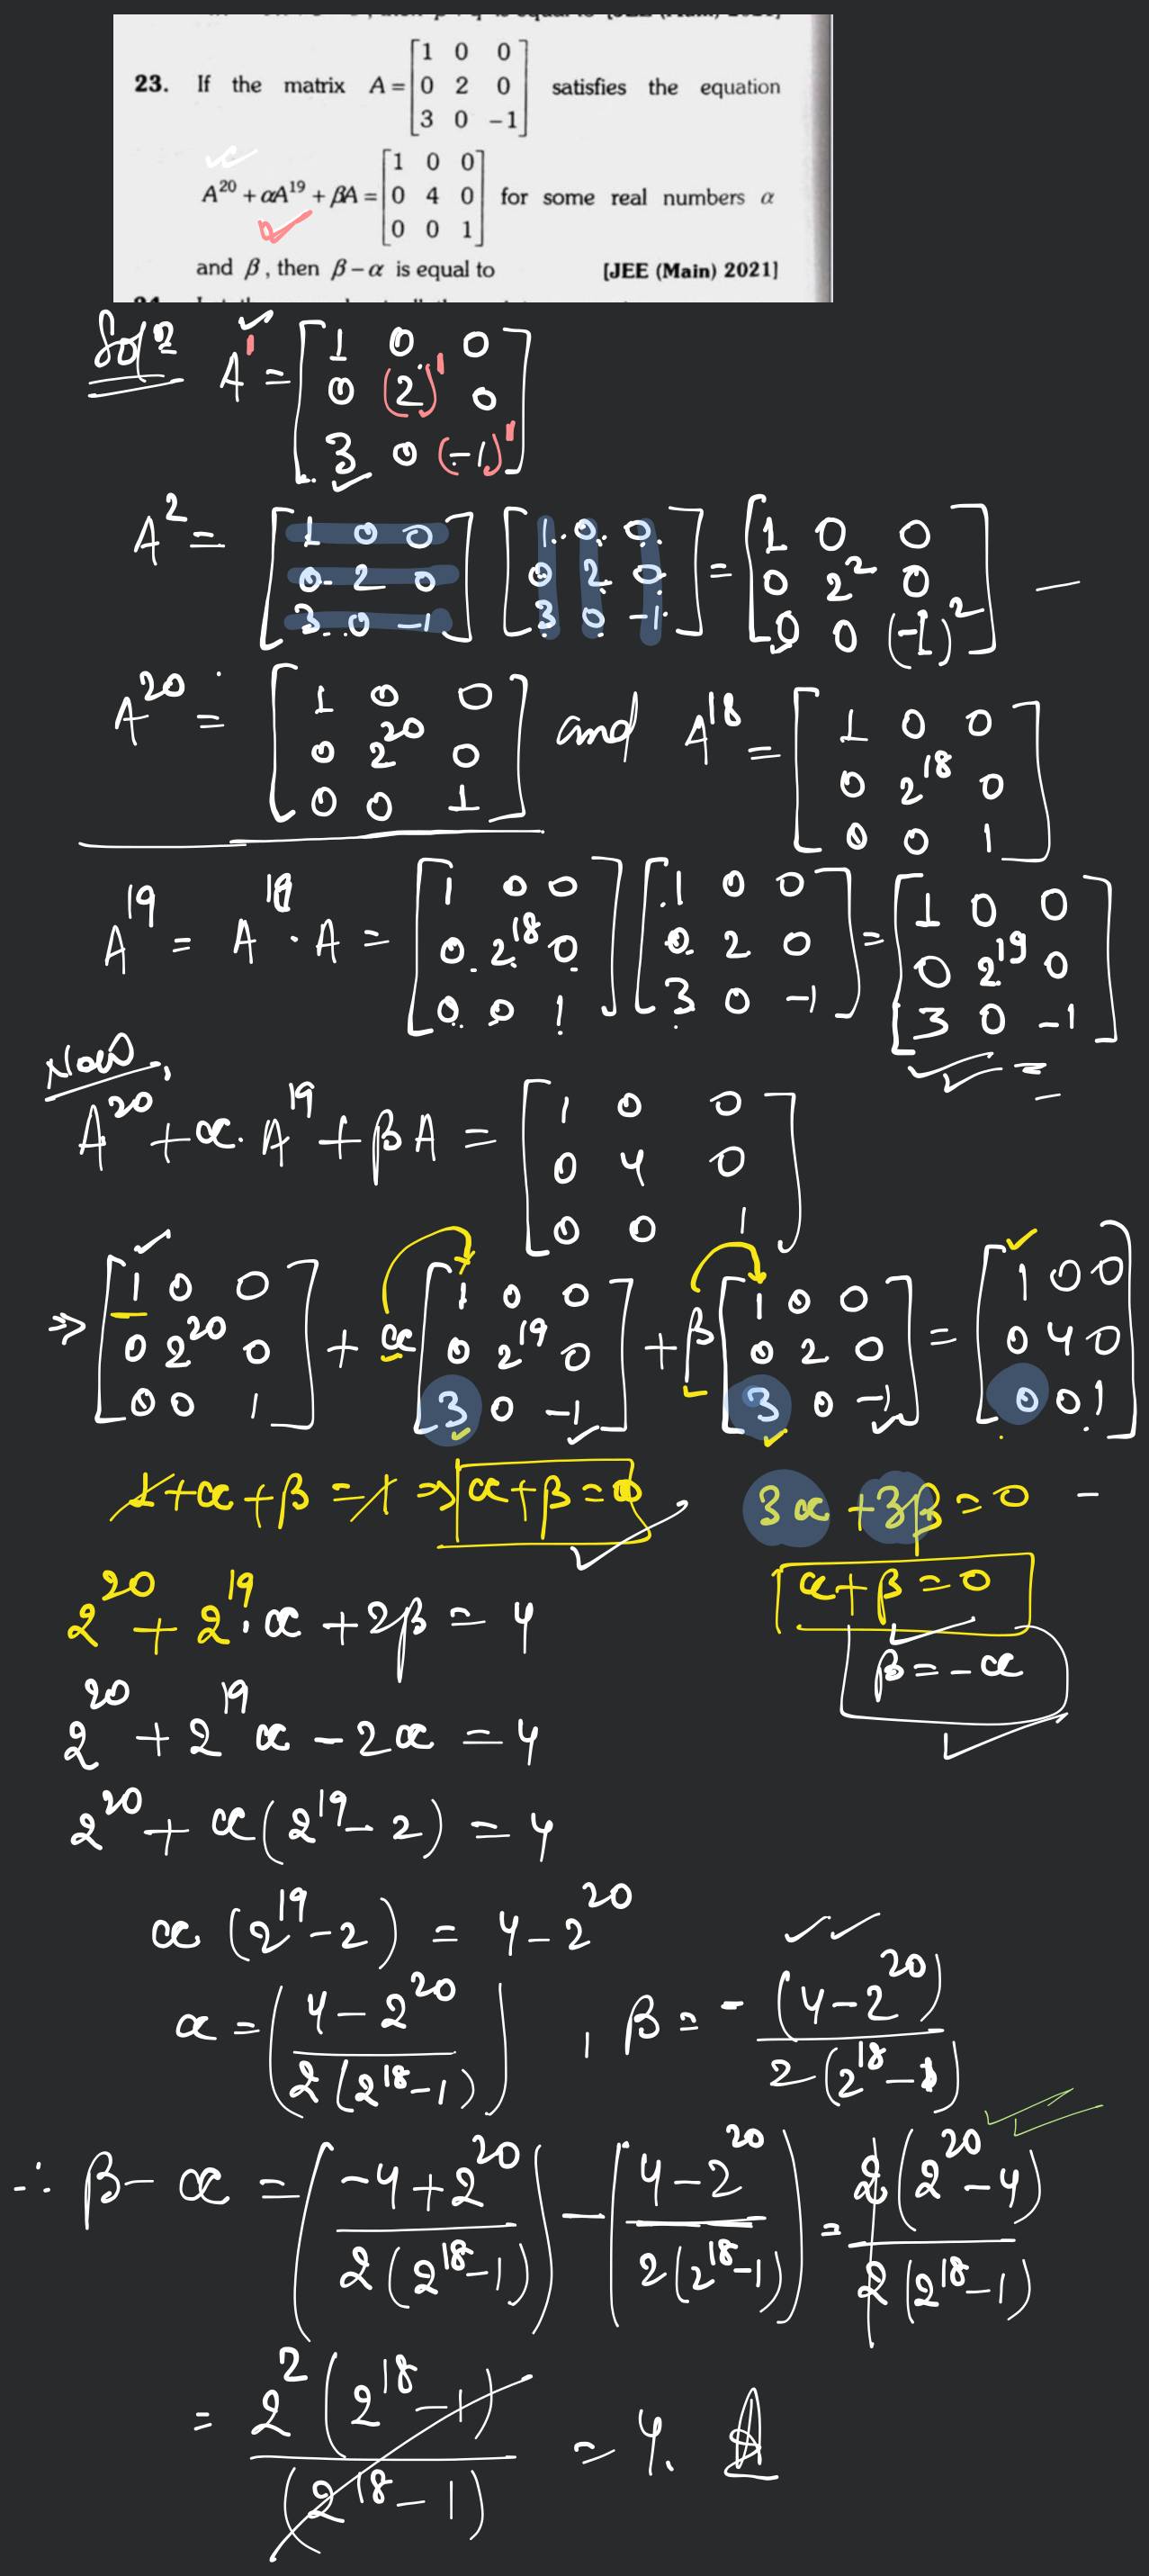 23. If the matrix A = [1 0 0; 0 2 0; 3 0 -1] satisfies the equation
A^20 + αA^19 + βA = [1 0 0; 0 4 0; 0 0 1] for some real numbers α
and β, then β - α is equal to [JEE (Main) 2021]
Sol^n
A^1 = [1 0 0; 0 (2)^1 0; 3 0 (-1)^1]
A^2 = [1 0 0; 0 2 0; 3 0 -1] [1 0 0; 0 2 0; 3 0 -1] = [1 0 0; 0 2^2 0; 0 0 (-1)^2]
A^20 = [1 0 0; 0 2^20 0; 0 0 1] and A^18 = [1 0 0; 0 2^18 0; 0 0 1]
A^19 = A^18 · A = [1 0 0; 0 2^18 0; 0 0 1] [1 0 0; 0 2 0; 3 0 -1] = [1 0 0; 0 2^19 0; 3 0 -1]
Now,
A^20 + α · A^19 + βA = [1 0 0; 0 4 0; 0 0 1]
⇒ [1 0 0; 0 2^20 0; 0 0 1] + α [1 0 0; 0 2^19 0; 3 0 -1] + β [1 0 0; 0 2 0; 3 0 -1] = [1 0 0; 0 4 0; 0 0 1]
1 + α + β = 1 ⇒ α + β = 0, 3α + 3β = 0
α + β = 0
2^20 + 2^19 · α + 2β = 4
β = -α
2^20 + 2^19 α - 2α = 4
2^20 + α(2^19 - 2) = 4
α (2^19 - 2) = 4 - 2^20
α = ((4 - 2^20) / 2(2^18 - 1)), β = -(4 - 2^20) / 2(2^18 - 1)
∴ β - α = ((-4 + 2^20) / 2(2^18 - 1)) - ((4 - 2^20) / 2(2^18 - 1)) = 2(2^20 - 4) / 2(2^18 - 1)
= 2^2 (2^18 - 1) / (2^18 - 1) = 4.